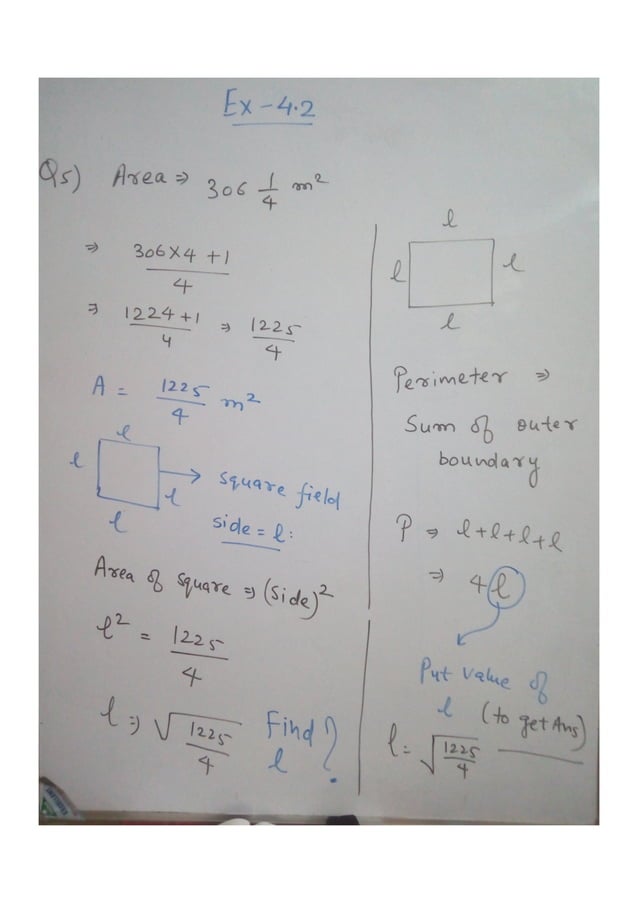 Ex - 4.2
Q5) Area ⇒ 306 1/4 m²
⇒ 306×4 +1 / 4
⇒ 1224 +1 / 4 ⇒ 1225 / 4
A = 1225 / 4 m²
l
l
l
l
square field
side = l :
Area of square ⇒ (side)²
l² = 1225 / 4
l ⇒ √1225 / 4 Find l ?
l
l
l
l
Perimeter ⇒
Sum of outer
boundary
P ⇒ l+l+l+l
⇒ 4 l
Put value of
l (to get Ans)
l = √1225 / 4